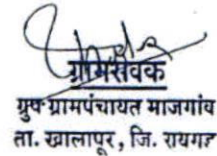 ग्रामसेवक
ग्रुप ग्रामपंचायत माजगांव
ता. खालापूर, जि. रायगड